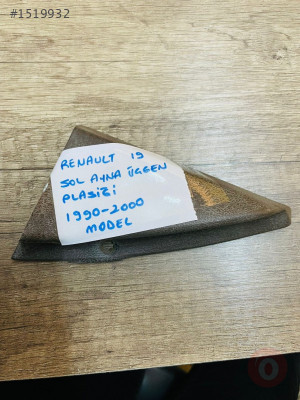 #1519932
RENAULT 19
SOL AYNA ÜGGEN
PLASİZİ
1990-2000
MODEL